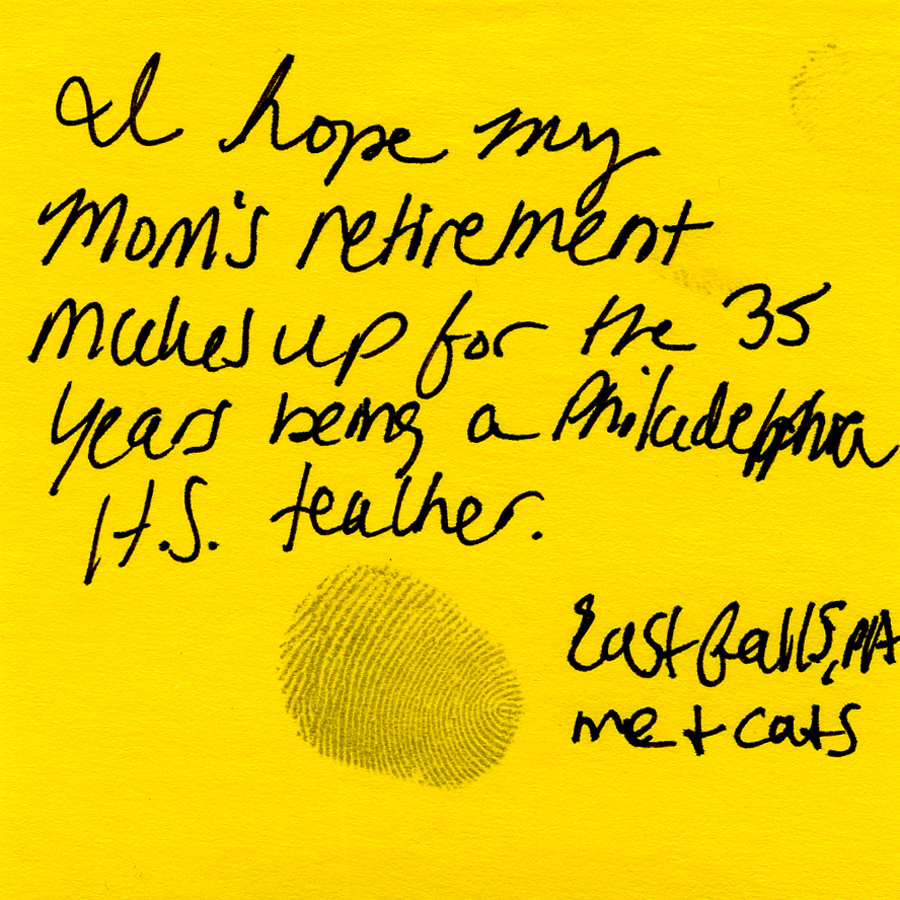 I hope my
Mom's retirement
makes up for the 35
years being a Philadelphia
H.S. teacher.
East Falls, PA
me + cats